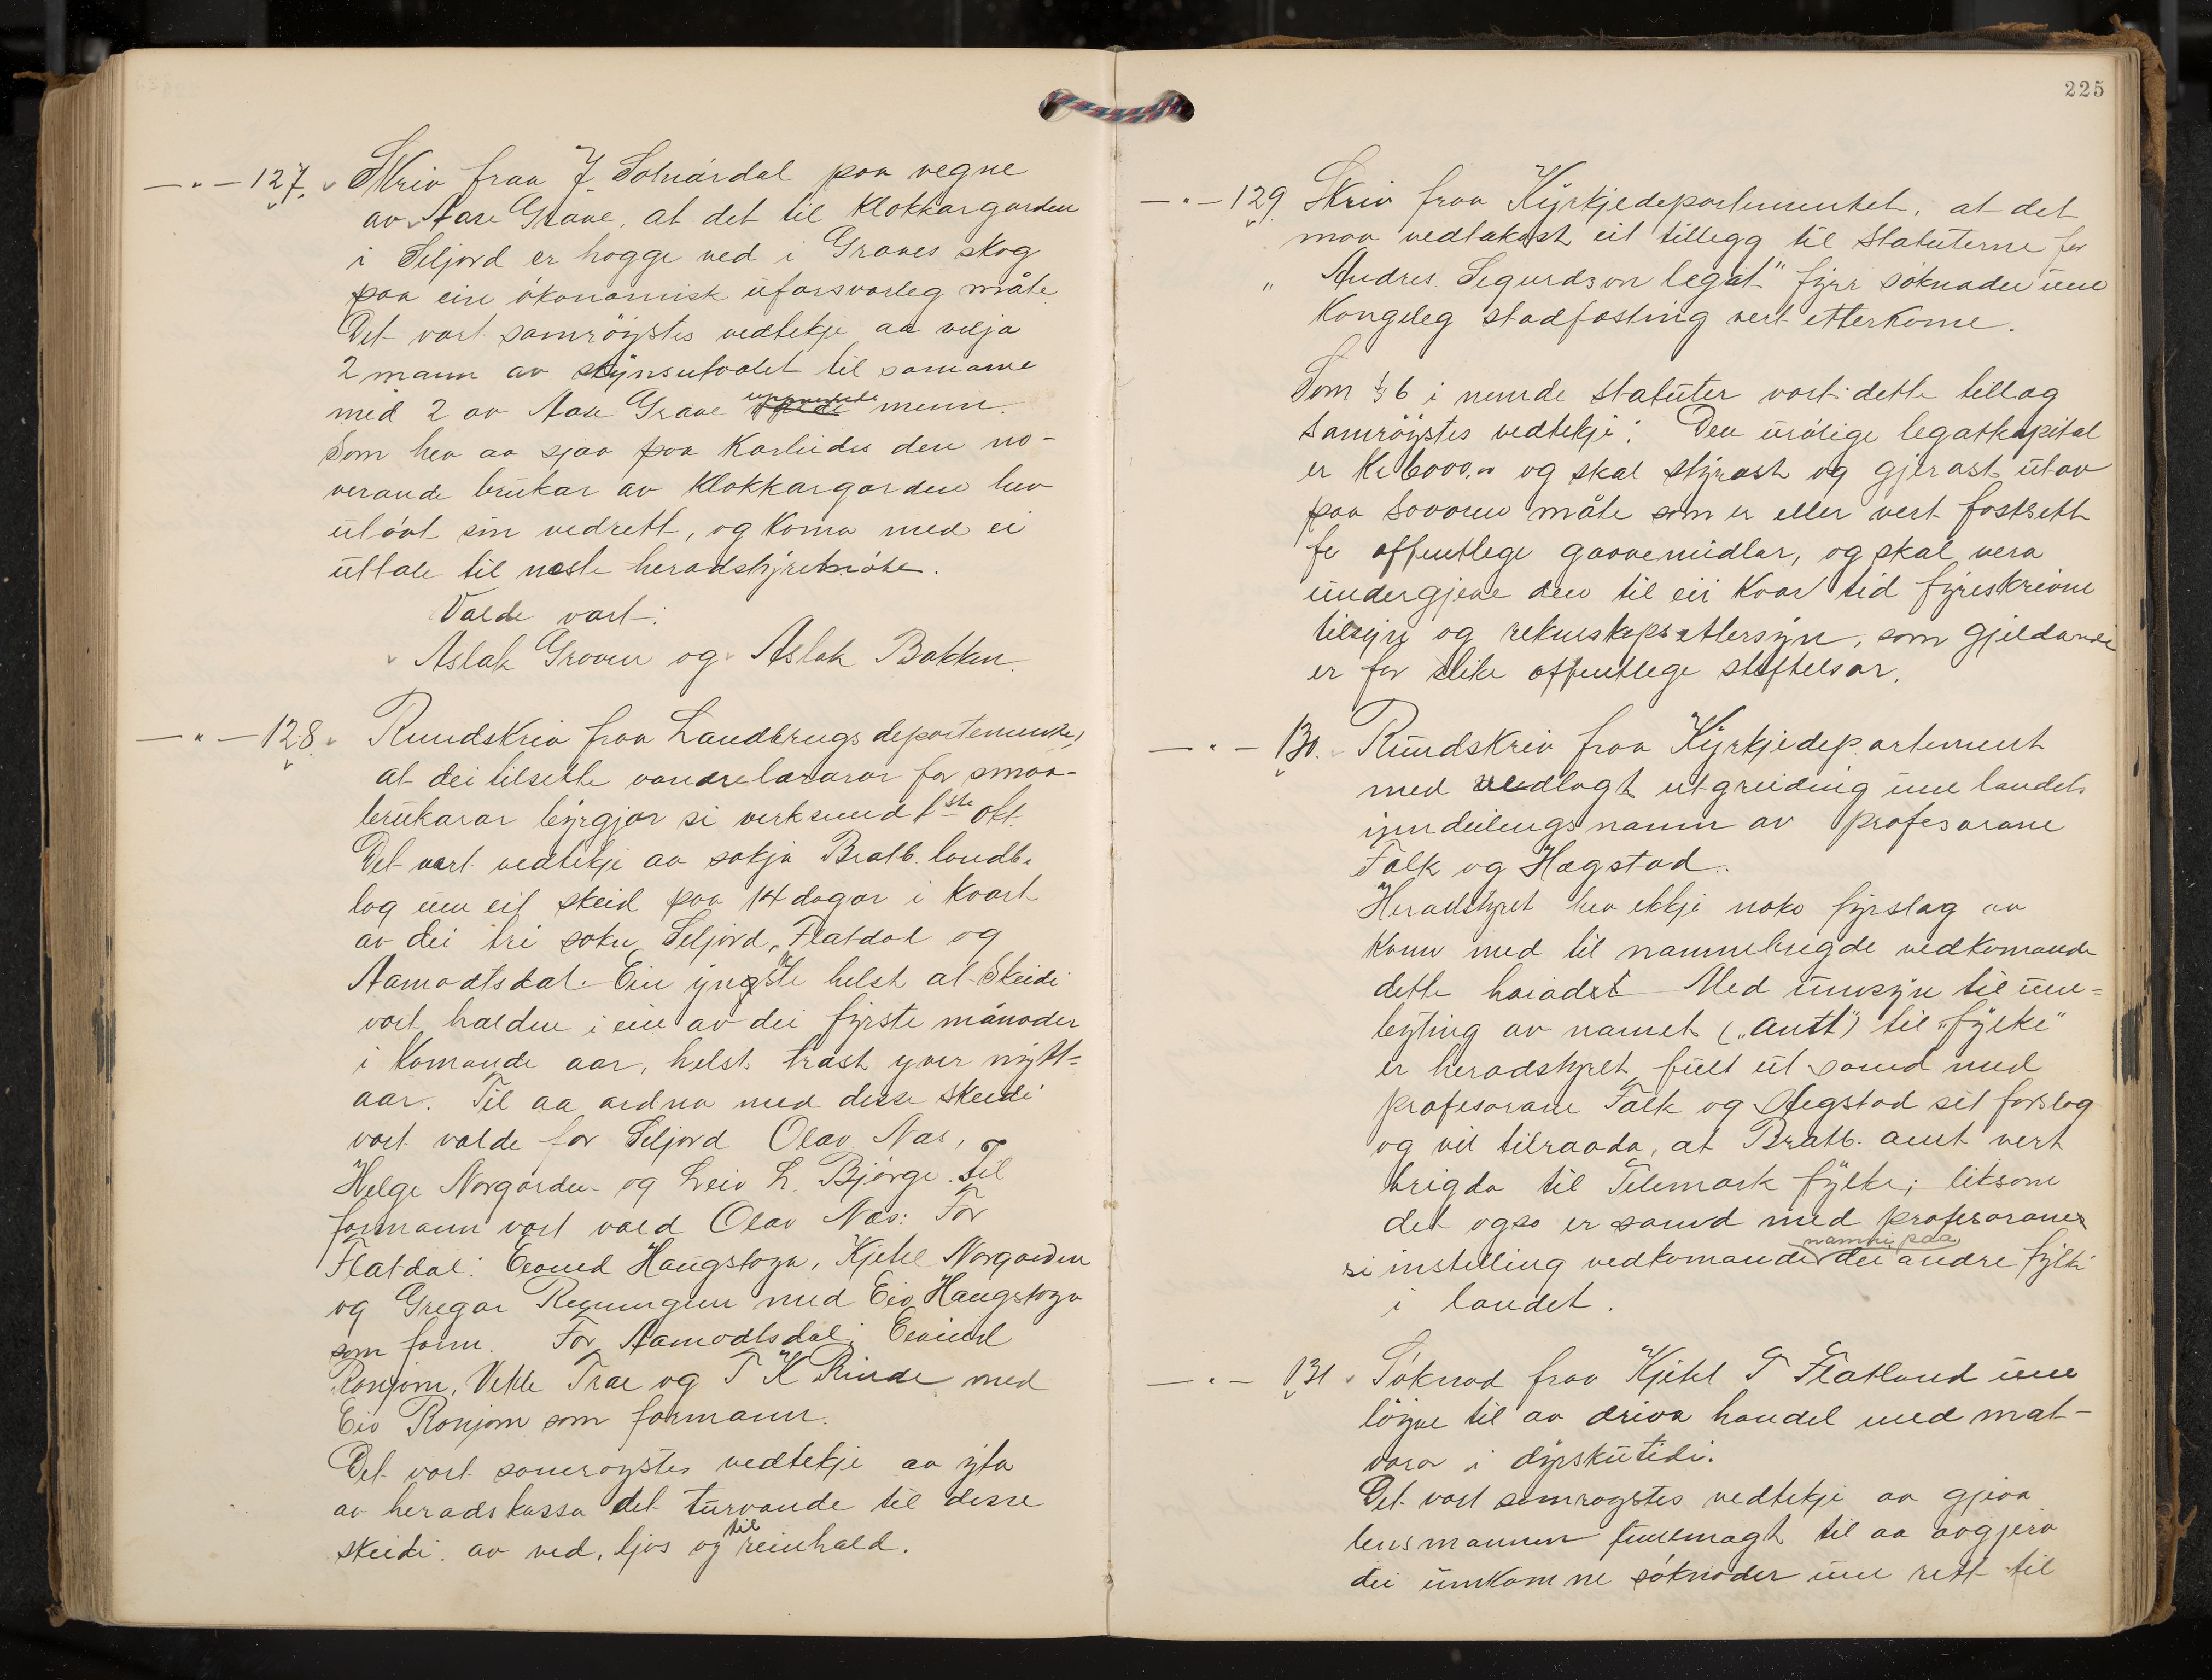 — " — 127. Skriv fraa J. Solnárdal paa vegne
av Aase Grave, at det til Klokkargarden
i Seljord er hogge ved i Graves skog
paa ein ókonomisk uforsvarleg måte
Det vart samröystes vedtekje aa velja
2 mann av skynsutvalet til samame
med 2 av Aase Grave menn.
Som hev aa sjaa paa Korleides den no-
verande brukar av Klokkargarden hev
utóvt sin vedrett, og Koma med ei
uttale til neste heradstyremóte.
Valde vart:
Aslak Groven og Aslak Bakken.
— " — 128. Rundskriv fraa Landbrugsdepartementet,
at dei tilsette vandrelærarar for smaa-
brukarar byrgjar si verksemd 1ste okt.
Det vart vedtekje aa sókja Bratb. landb.
lag um eit skeid paa 14 dagar i kvart
av dei tri sokn Seljord, Flatdal og
Aamodtsdal. Ein ynskte helst at Skeidi
vart haldne i ein av dei fyrste månader
i Komande aar, helst trast yver nytt-
aar. Til aa ordna med desse skeidi
vart valde for Seljord Olav Nas,
Helge Norgården og Leiv L. Bjórge. Til
formann vart vald Olav Nas: For
Flatdal: Eivind Haugstoga, Kjetil Norgarden
og Gregar Rynningen med Eiv. Haugstoga
som form. For Aamodtsdal: Eivind
Ronjom, Vetle Trae og T K Rinde med
Eiv Ronjom som formann.
Det vart samröystes vedtekje aa yta
av heradskassa det turvande til desse
skeidi av ved, ljos og til reinhald.
225
— " — 129 Skriv fraa Kyrkjedepartementet, at det
maa vedtakast eit tillegg til Statuterne for
" Andres Sigurdson legat" fyrr sóknaden um
Kongeleg stadfasting vert etterkome.
Som § 6 i nemde statuter vart dette tillag
Samröystes vedtekje: Den urólige legatkapital
er Kr 6000.00 og skal styrast og gjerast utav
paa sovoren måte som er eller vert fastsett
for offentlege gaavemidlar, og skal vera
undergjeve den til ein kvar tid fyreskrivne
tilsyn og rekneskapsettersyn, som gjeldande
er for slike offentlege stiftelsar.
— " — 130. Rundskriv fraa Kyrkjedepartement
med vedlagt utgreiding um landets
inndeilingsnamn av profesorane
Falk og Hægstad.
Heradstyret hev ikkji noko fyrslag aa
koma med til namnebrigde vedkomande
dette heradet Med umsyn til um-
byting av namet ("amt") til "fylke"
er heradstyret fullt ut samd med
profesorane Falk og Hægstad sit forslag
og vil tilraada, at Bratb. amt vert
brigda til Telemark fylke; liksom
det ogso er samd med profesoranes
si instelling vedkomande namni paa dei andre fylki
i landet.
— " — 131. Sóknad fraa Kjetil T Flatland um
löyve til aa driva handel med mat-
varor i dyrskutidi.
Det vart samröystes vedtekje aa gjeva
lensmannen fullmagt til aa avgjera
dei innkomne sóknader um rett til